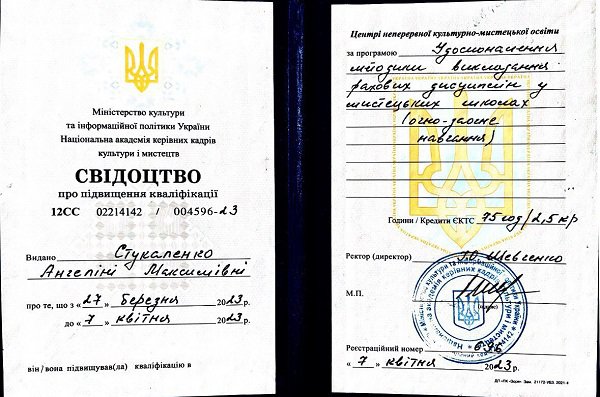 Міністерство культури
та інформаційної політики України
Національна академія керівних кадрів
культури і мистецтв
СВІДОЦТВО
про підвищення кваліфікації
12СС 02214142 / 004596-23
Видано Стукаленко
Ангеліні Максимівні
про те, що з «27» березня 2023р.
до «7» квітня 2023р.
він/вона підвищував(ла) кваліфікацію в
Центрі неперервної культурно-мистецької освіти
за програмою Удосконалення
методики викладання
фахових дисциплін у
мистецьких школах
(очно-заочне
навчання)
Години / Кредити ЄКТС 75 год/2,5 кр
Ректор (директор) Шевченко
М.П.
Реєстраційний номер
«7» квітня 2023р.